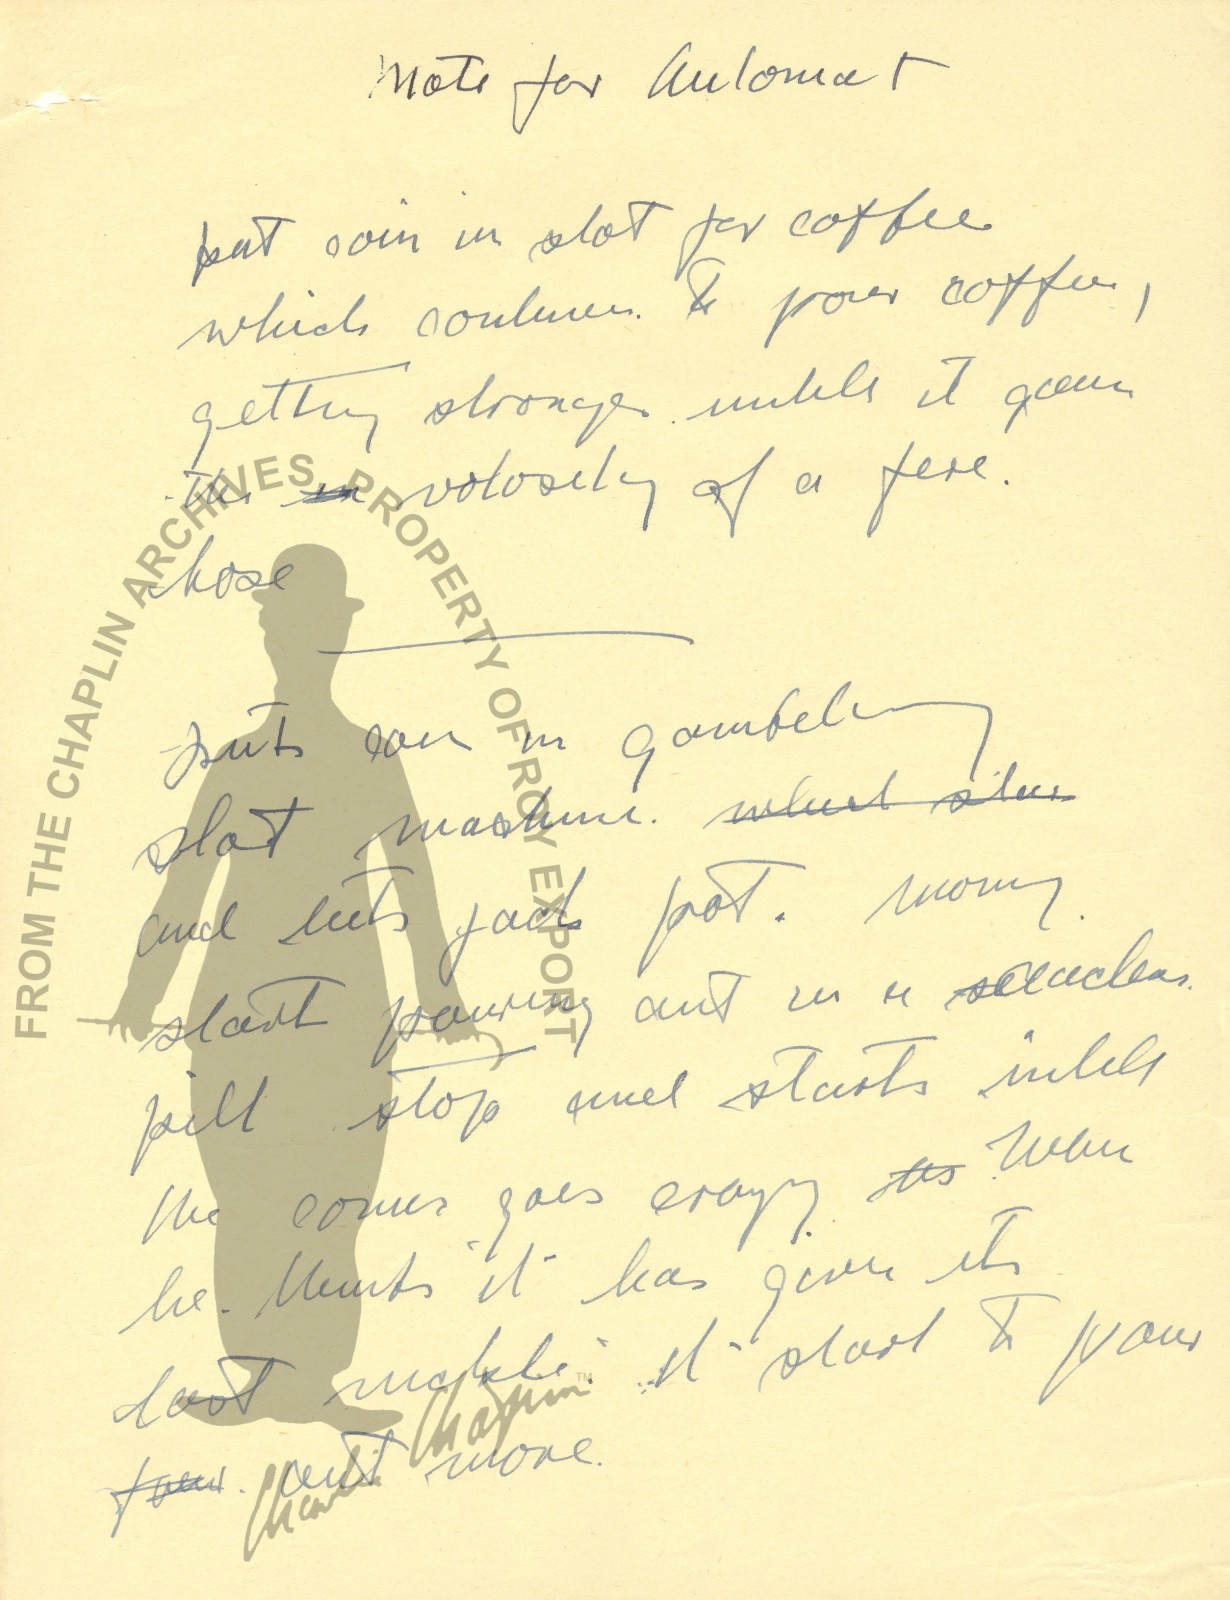 Note for Automat
put coin in slot for coffee
which continues to pour coffee,
getting stronger untill it gains
the volosity of a fire.
hose
puts coin in gambeling
slot mashine. which
and hits jack pot. mony
start pouring out in a
pill stop and starts intill
the comes goes crazy. as When
he. thinks it has given its
last nickle. it start to pour
four. out more.
FROM THE CHAPLIN ARCHIVES, PROPERTY OF ROY EXPORT
Charlie Chaplin™